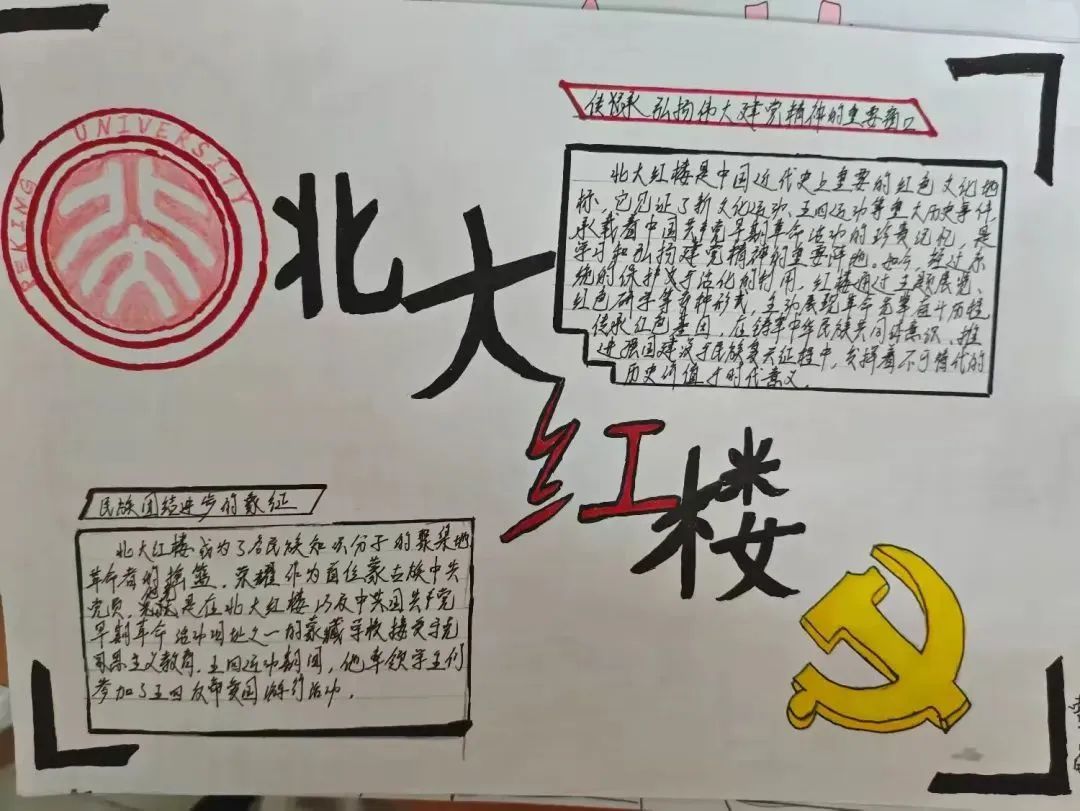 PEKING UNIVERSITY
北大红楼
传承弘扬伟大建党精神的重要窗口
北大红楼是中国近代史上重要的红色文化地
标,它见证了新文化运动、五四运动等重大历史事件,
承载着中国共产党早期革命活动的珍贵记忆,是
学习和弘扬建党精神的重要阵地。如今,经过系
统的保护与活化的利用,红楼通过主题展览、
红色研学等多种形式,生动展现革命先辈奋斗历程
传承红色基因,在铸牢中华民族共同体意识、推
进强国建设与民族复兴征程中,发挥着不可替代的
历史价值与时代意义。
民族团结进步的象征
北大红楼成为了各民族知识分子的聚集地
革命者的摇篮,荣耀作为首位蒙古族中共
党员,是在北大红楼以及中共国共产党
早期革命活动旧址之一的蒙藏学校接受马克
思主义教育,五四运动期间,他率领学生们
参加了五四反帝爱国游行活动。